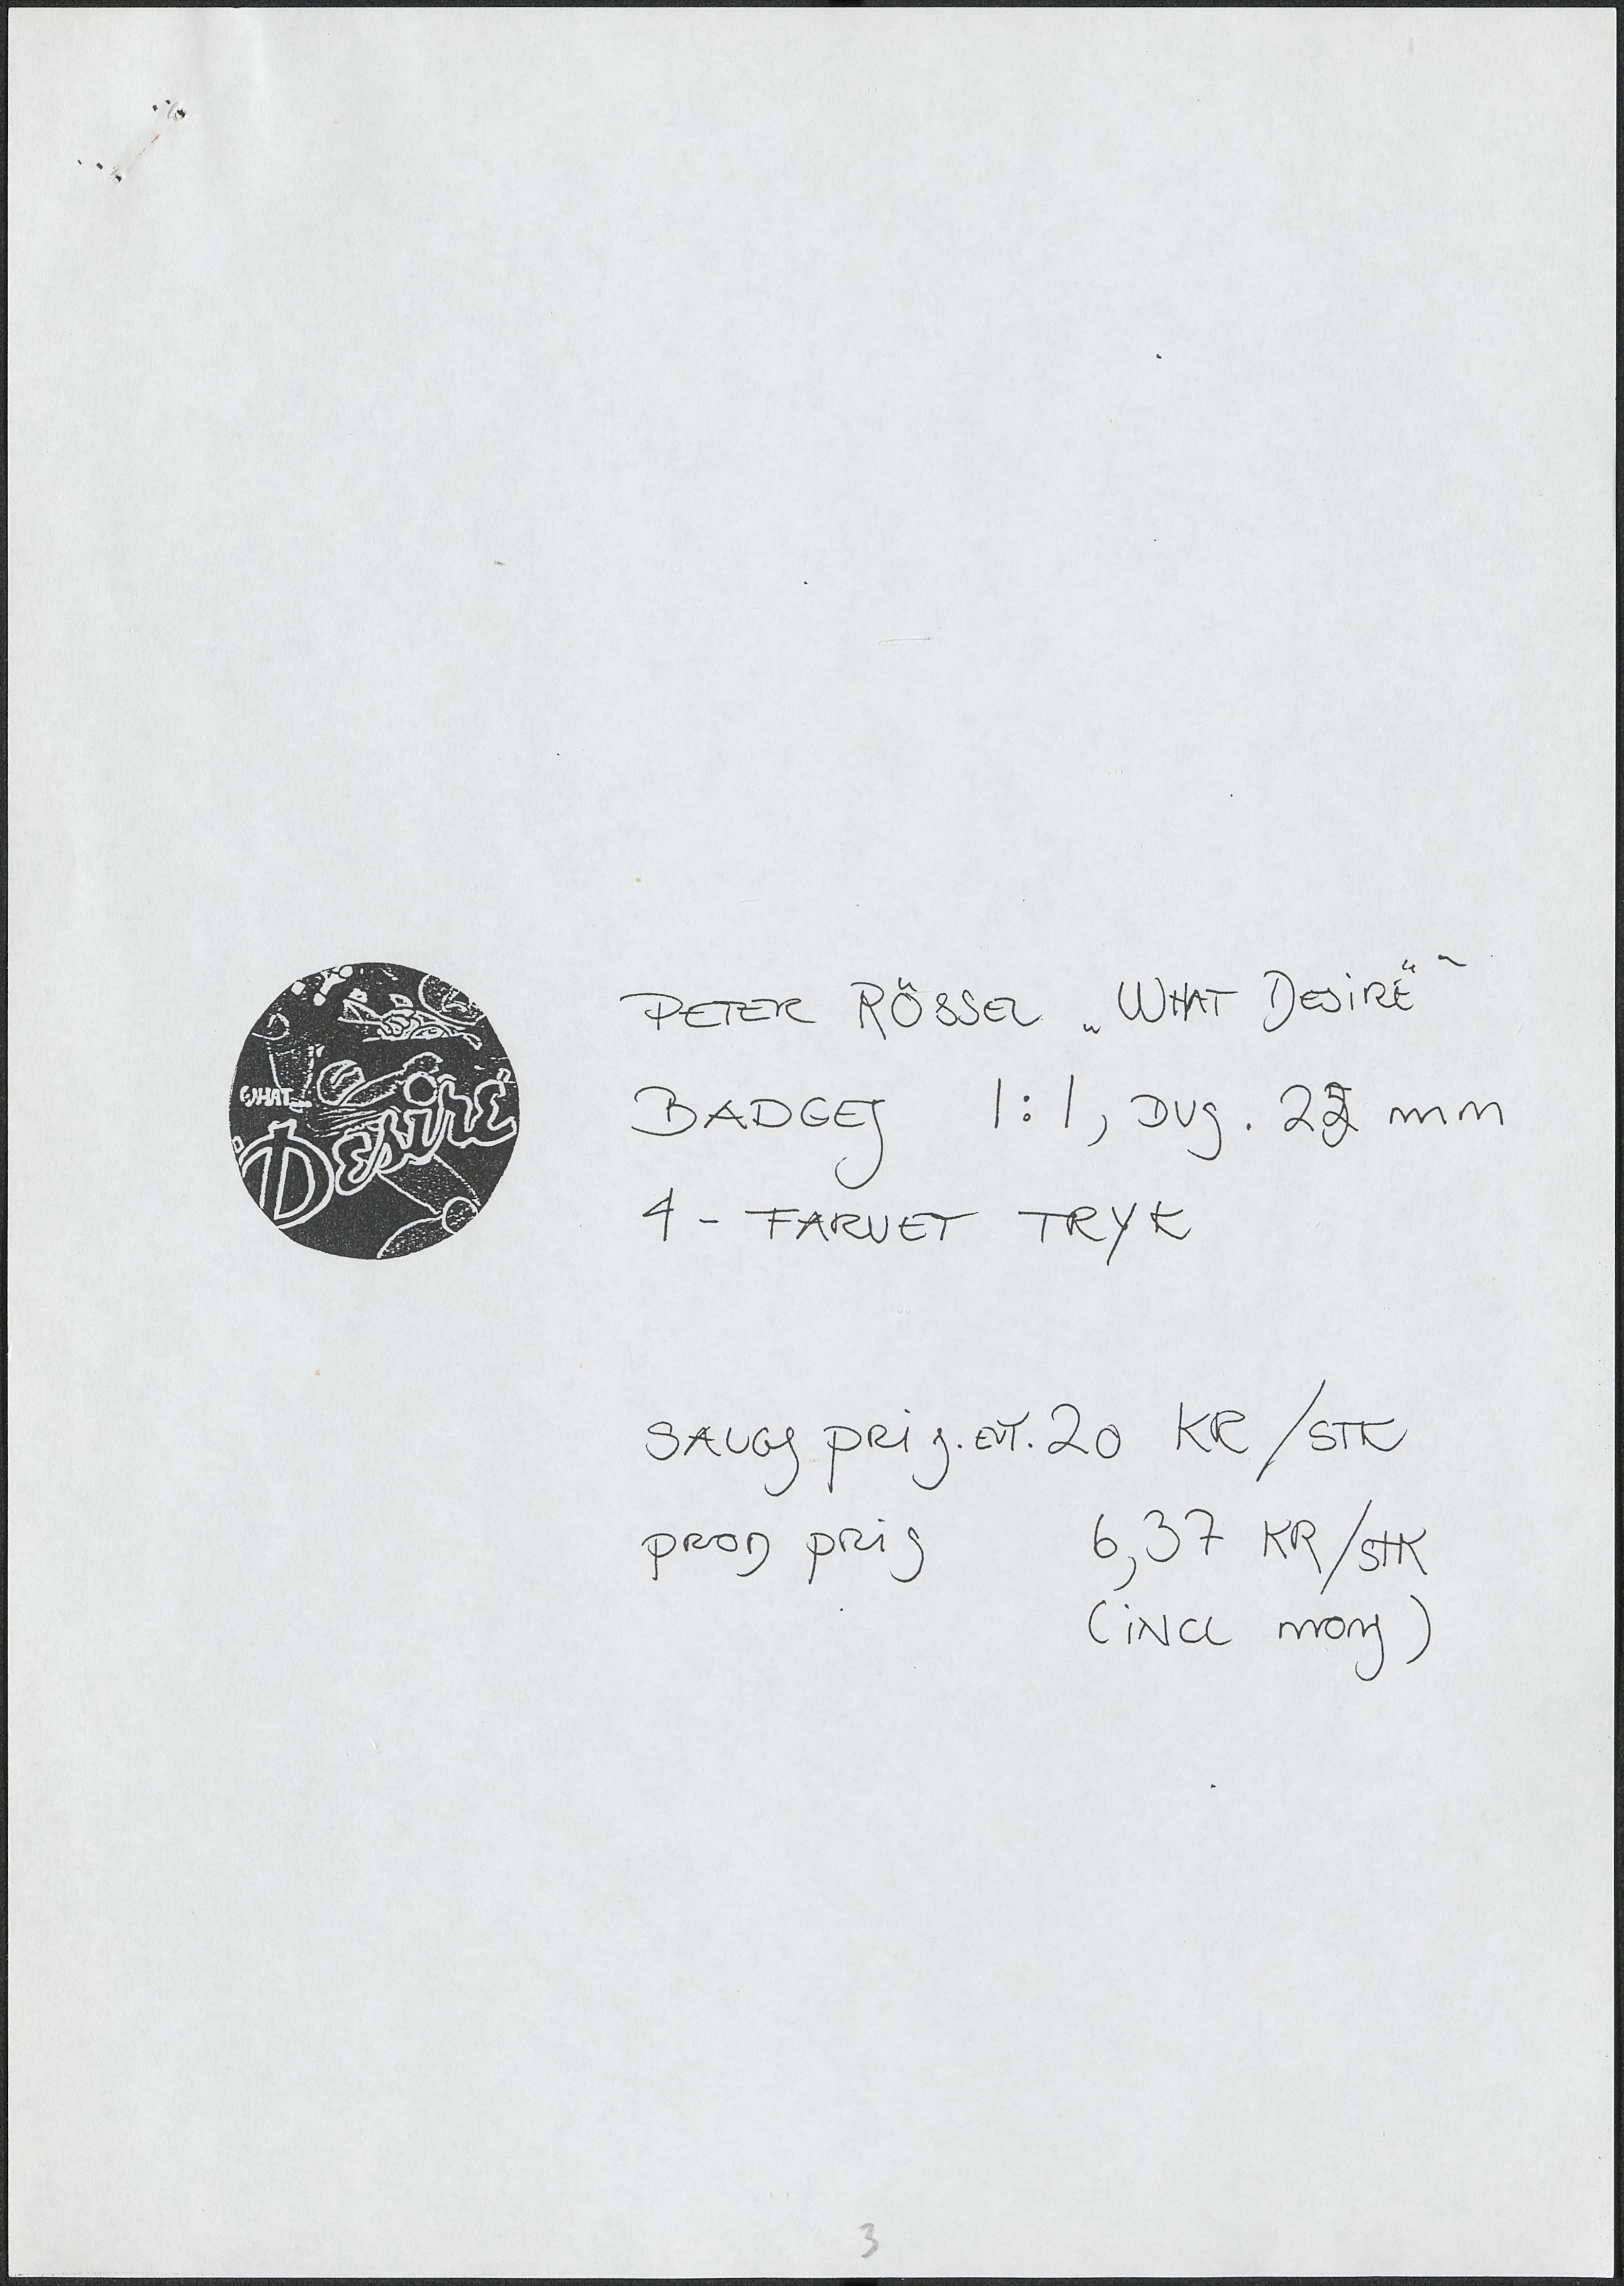 PETER RÖSSEL „WHAT DESIRÉ" -
WHAT
"DESIRÉ"
BADGES 1:1, DVS. 22 mm
4 - FARVET TRYK
SALGS PRIS. EVT. 20 KR/STK
PROD PRIS 6,37 KR/STK
(INCL MOMS)
3